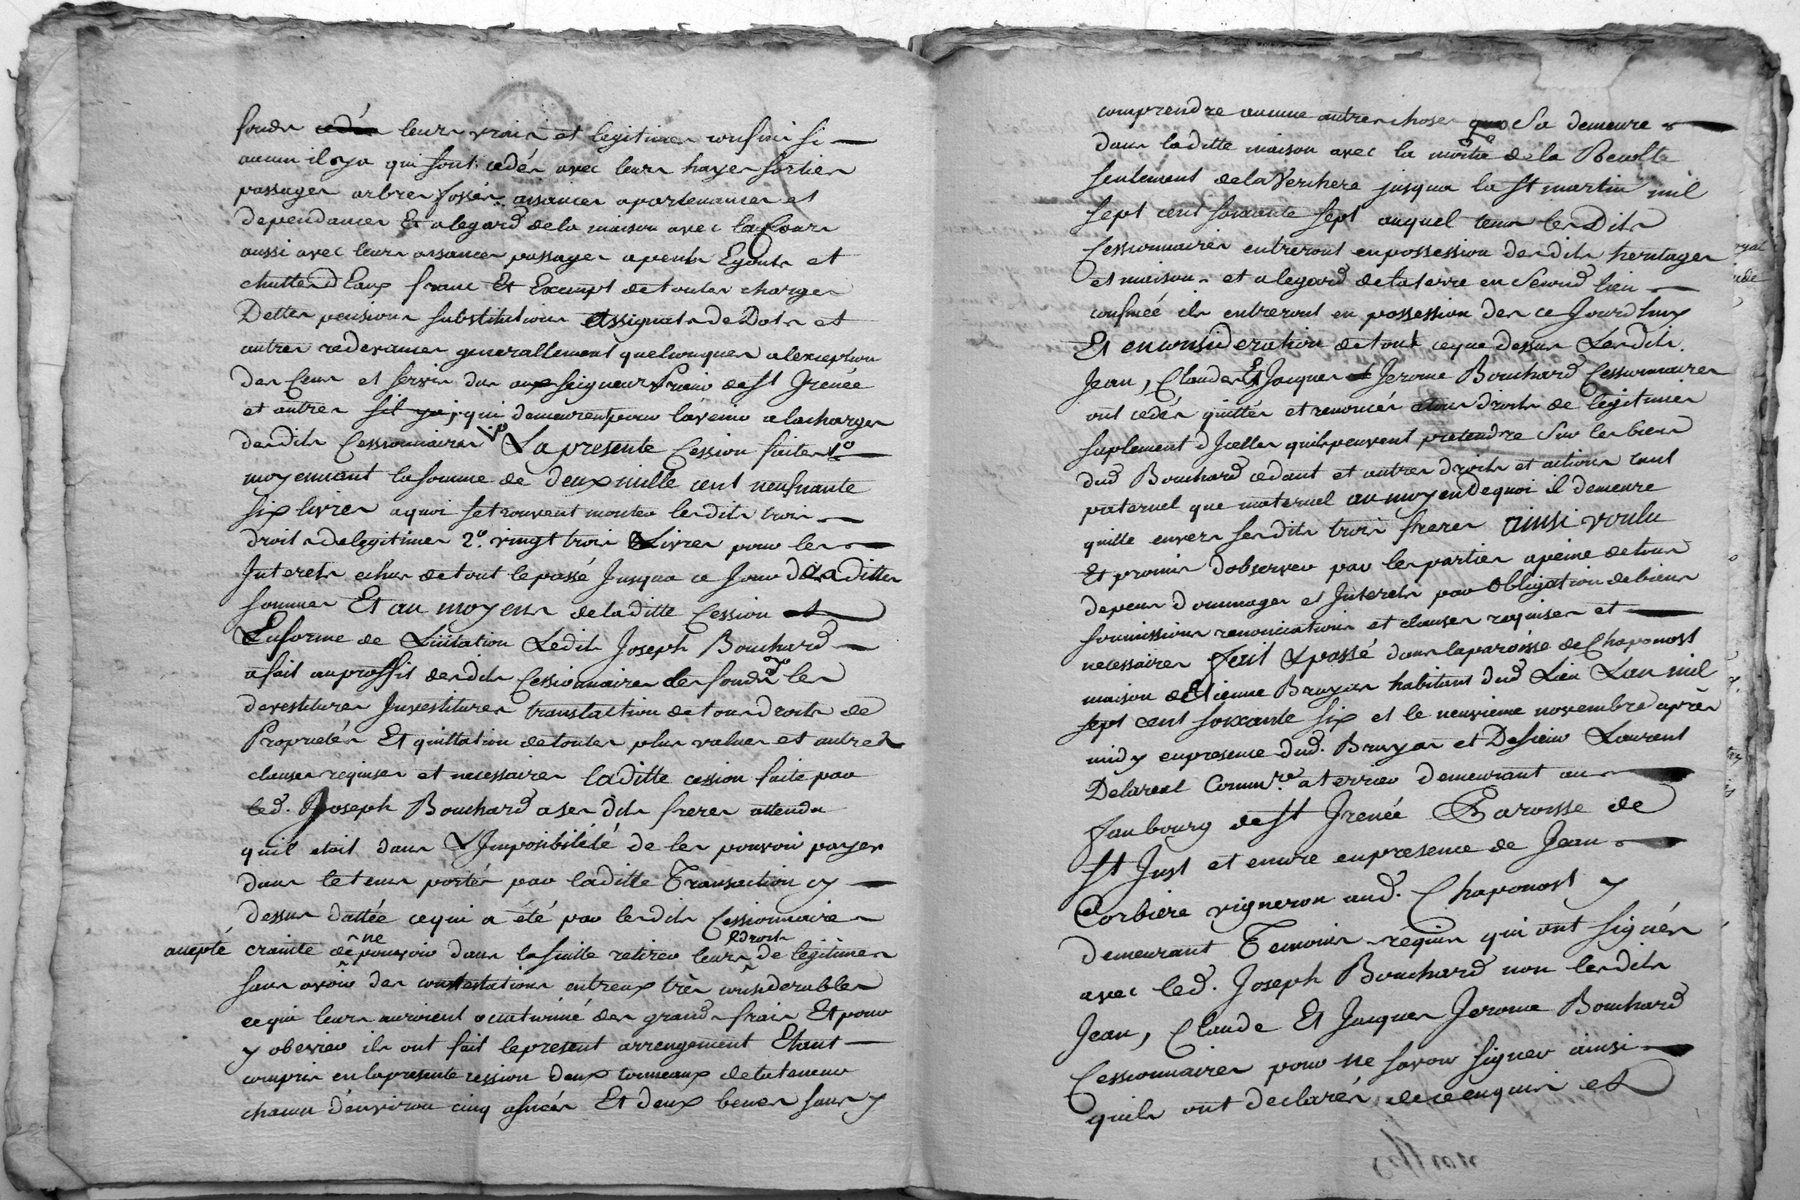 fonds cedés leurs vrais et legitimes confins si
aucun il y a qui sont cedés avec leurs hayes sorties
passages arbres fossés aisances apartenances et
dependances Et alegard dela maison avec la Cour
aussi avec leurs aisances passages apents Egouts et
chuttes d'Eaux franc Et Exempt detoutes charges
Dettes pensions substitutions assignats de Dots et
autres redevances generallement quelconques alexception
des Cens et servis dus aux seigneurs Prieur de St Irenée
et autres sil ya, qui demeurent pour lavenir alacharge
desdits Cessionnaires La presente Cession faite 1o
moyennant la somme de deux mille cent neufnante
six livres aquoi se trouvent monter lesdits trois
droits delegitimes 2o. vingt trois Livres pour les
Interets echus detout lepassé Jusqua ce Jour desdittes
sommes Et au moyens deladitte Cession et
Enforme de Licitation Ledit Joseph Bouchard
a fait auproffit desdits Cessionnaires des fonds les
devestitures Investitures translation detous droits de
Proprietés Et quittation detoutes plus values et autres
clauses requises et necessaires laditte cession faite par
led. Joseph Bouchard a ses dits freres attendu
quil etoit dans L'Imposibilité de les pouvoir payer
dans letems portés par laditte Transaction cy
dessus dattée cequi a été par lesdits Cessionnaires
accepté crainte de ne pouvoir dans la suitte retirer leurs droits de legitimes
sans avoir des contestations entreux très considerables
cequi leurs auroient occationné des grands frais Et pour
y obvier ils ont fait lepresent arrengement Etant
compris en lapresente cession deux tonneaux detatenue
chacun d'environ cinq asnées Et deux benes sans y
comprendre aucune autres choses que Sa demeure
dans laditte maison avec la moitié de la Recolte
seulement dela Verchere jusqua la St martin mil
sept cent soixante sept auquel tems lesdits
Cessionnaires entreront enpossession desdits heritages
et maison. et alegard delaterre en Second lieu
confinée ils entreront en possession des ce Jourdhuy
Et enconsideration detout ceque dessus Lesdits
Jean, Claude Et Jacques Jerome Bouchard Cessionnaires
ont cedés quittés et renoncés atous droits de legitimes
suplement d'Icelles quilspeuvent pretendre Sur les biens
dud Bouchard cedant et autres droits et actions tant
paternel que maternel aumoyendequoi il demeure
quitte envers sesdits trois freres ainsi voulu
Et promis d'observer par les parties apeine detous
depens dommages et Interets par obligation debiens
soumissions renonciations et clauses requises et
necessaires fait & passé dans laparoisse de Chaponost
maison d'Etienne Bruyas habitant dud Lieu Lan mil
sept cent soixante six et le neuvieme novembre après
midy enpresence dud. Bruyas et De sieur Laurent
Delarest Comm.re aterrier demeurant au
faubourg de St Irenée Paroisse de
St Just et encore enpresence de Jean
Corbiere vigneron aud. Chaponost y
demeurant Temoins requis qui ont signés
avec led. Joseph Bouchard non lesdits
Jean, Claude Et Jacques Jerome Bouchard
Cessionnaires pour ne savoir signer ainsi
quils ont declarés dece enquis et